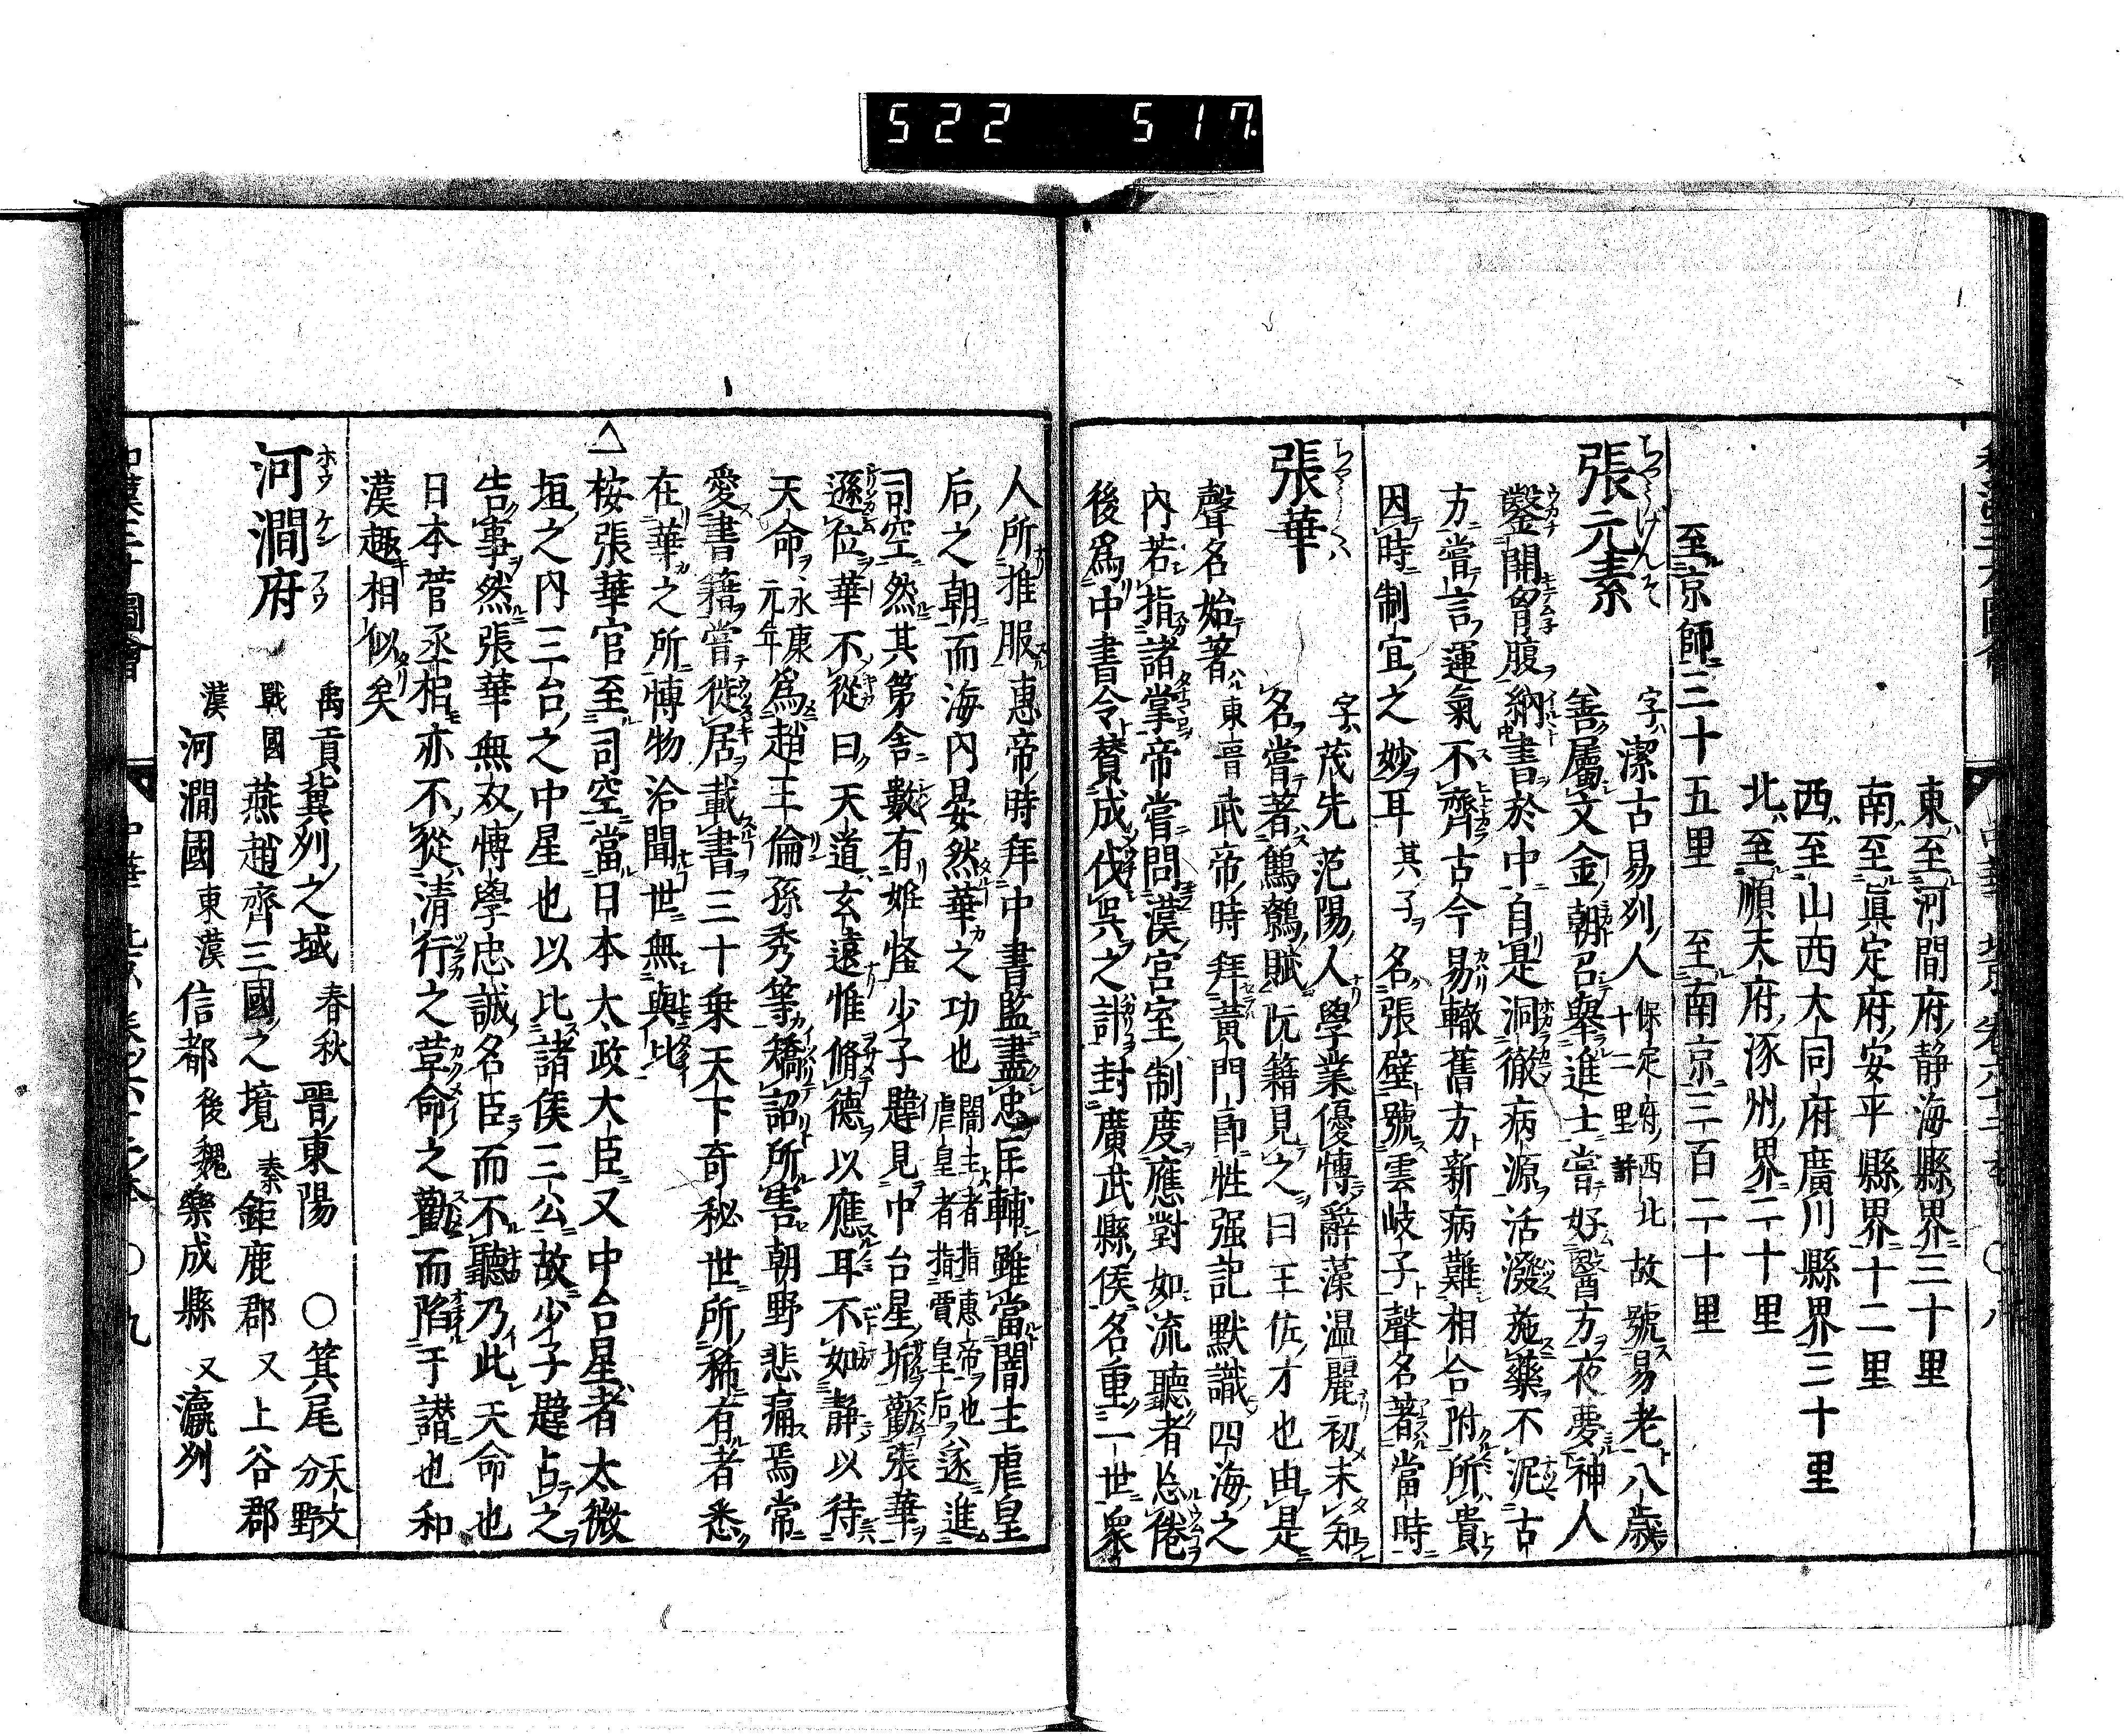 522 517
東至河間府静海縣界三十里
南至眞定府安平縣界十二里
西至山西大同府廣川縣界三十里
北至順天府涿州界二十里
至京師三十五里 至南京三百二十里
張元素 字潔古易刕人保定府西北十二里許故號易老八歳
善屬文金朝召舉進士嘗好醫方夜夢神人
鑿開胷腹納書於中自是洞徹病源活潑施藥不泥古
方嘗言運氣不齊古今易轍舊方新病難相合附所貴
因時制宜之妙耳其子名張壁號雲岐子聲名著當時
張華 字茂先范陽人學業優博辭藻温麗初未知
名嘗著鷦鷯賦阮籍見之曰王佐才也由是
聲名始著東晋武帝時拜黃門郎性强記默識四海之
內若指諸掌帝嘗問漢宮室制度應對如流聽者忘倦
後爲中書令賛成伐呉之計封廣武縣侯名重一世衆
人所推服惠帝時拜中書監盡忠匡輔雖當闇主虐皇
后之朝而海內晏然華之功也闇主者指惠帝也虐皇者指賈皇后遂進
司空然其第舍數有妖怪少子韙見中台星坼勸張華
遜位華不從曰天道玄遠惟脩德以應耳不如靜以待
天命永康元年爲趙王倫孫秀等矯詔所害朝野悲痛焉常
愛書籍嘗徙居載書三十乗天下奇秘世所稀有者悉
在華之所博物洽聞世無與比
△桉張華官至司空當日本太政大臣又中台星者太微
垣之内三台之中星也以比諸侯三公故少子韙占之
告事然張華無双博學忠誠名臣而不聽乃此天命也
日本菅丞相亦不從清行之革命之勸而陷于譛也和
漢趣相似矣
河澗府 禹貢冀刕之域 春秋晋東陽 ○箕尾天文分野
戰國燕趙齊三國之境 秦鉅鹿郡又上谷郡
漢河澗國 東漢信都 後魏樂成縣 又瀛刕